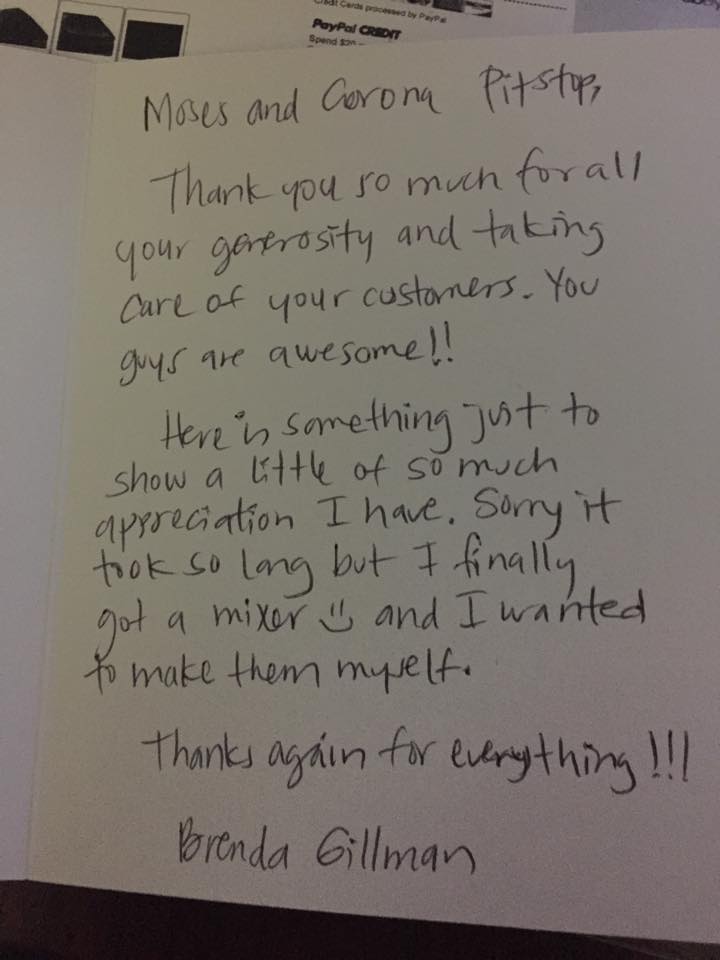 Credit Cards processed by PayPal
PayPal CREDIT
Spend $20
Moses and Corona Pitstop,
Thank you so much for all
your generosity and taking
care of your customers. You
guys are awesome!!
Here is something just to
show a little of so much
appreciation I have. Sorry it
took so long but I finally
got a mixer :) and I wanted
to make them myself.
Thanks again for everything!!!
Brenda Gillman